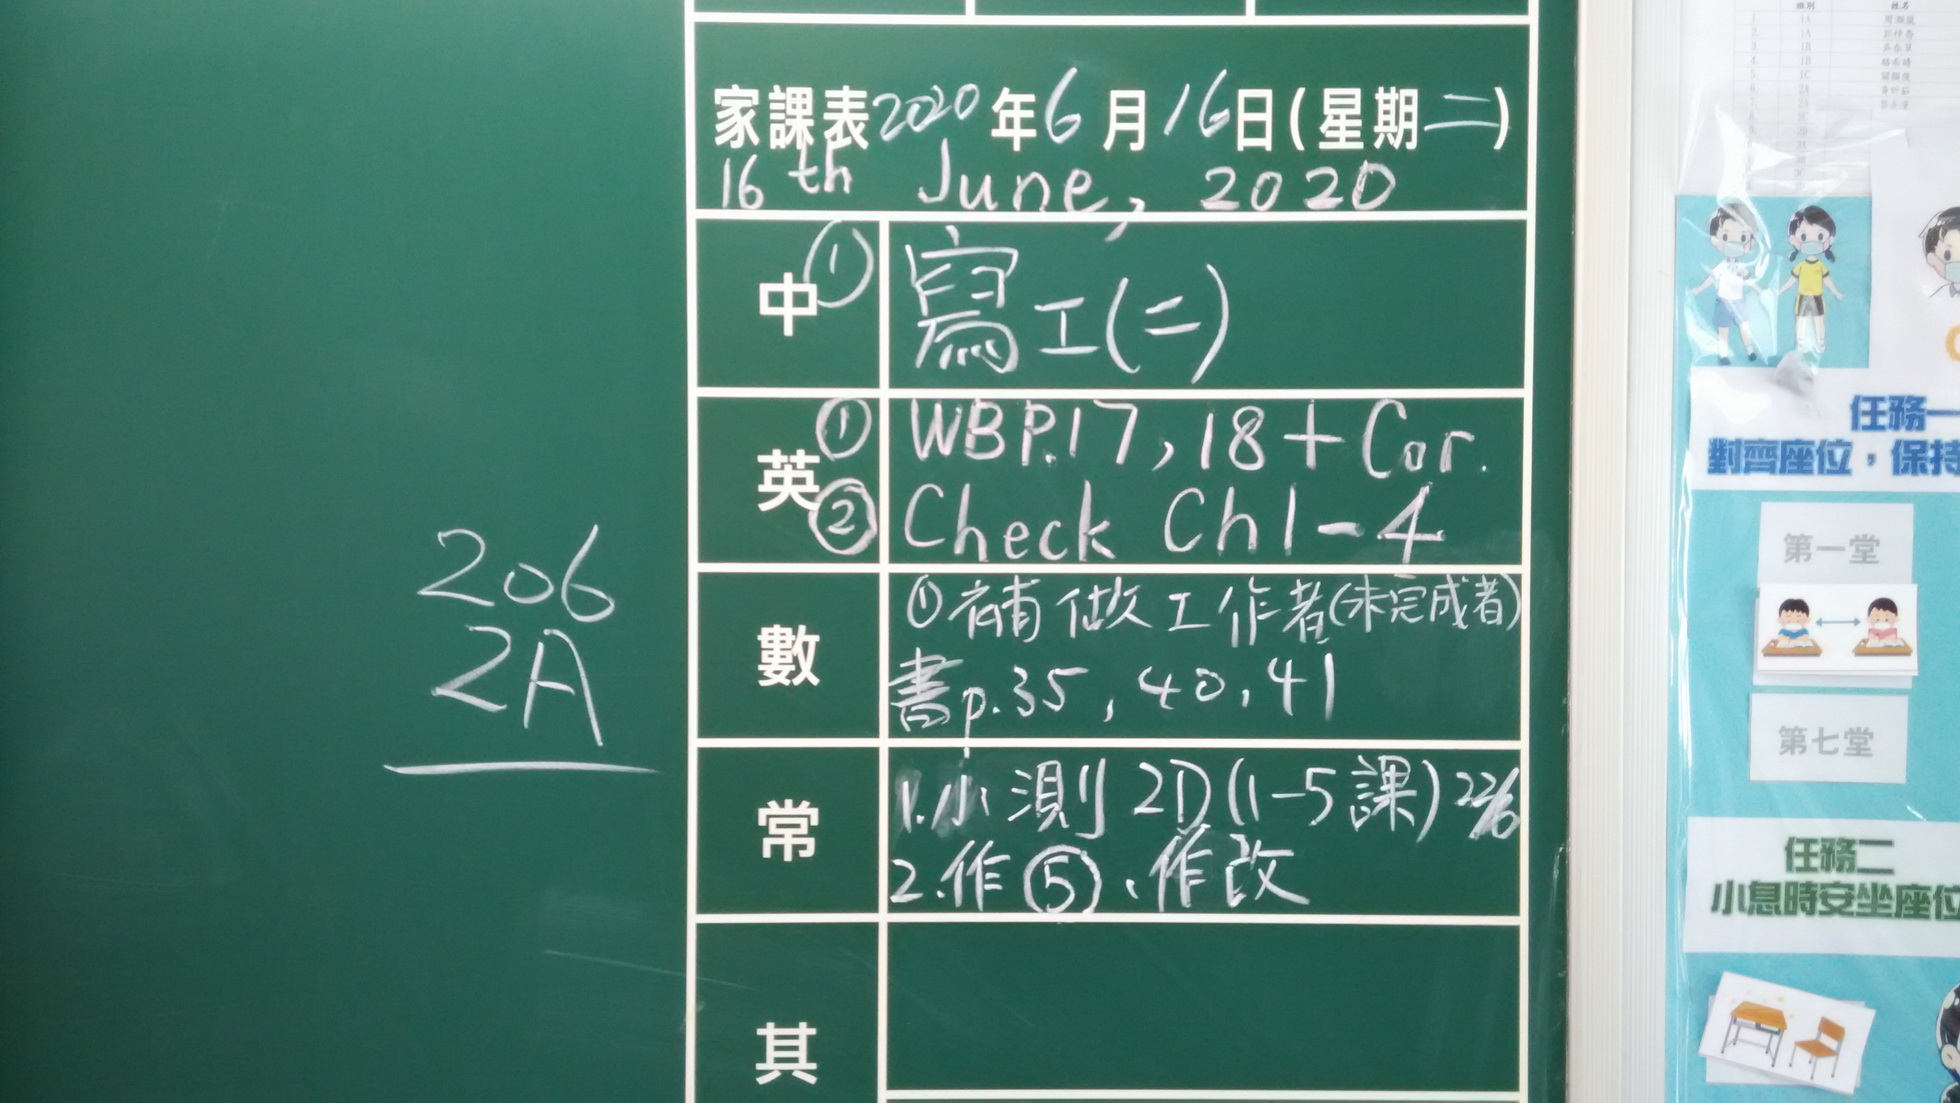 家課表2020年6月16日(星期二)
16th June, 2020
中① 寫工(二)
英① WBP.17,18+Cor.
② Check Ch1-4
數 ①補做工作者(未完成者)
書p.35,40,41
常 1.小測2D(1-5課)22/6
2.作⑤、作改
其
206
2A
任務一
對齊座位，保持
第一堂
第七堂
任務二
小息時安坐座位